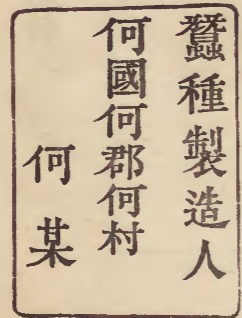 蠶種製造人
何國何郡何村
何某